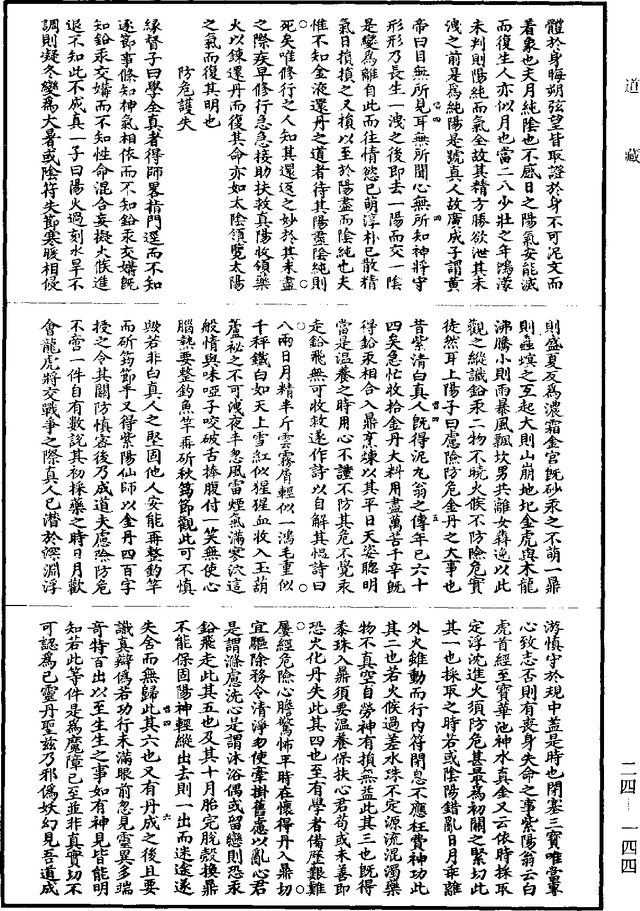 道藏
體於身晦朔弦望皆取證於身不可泥文而
着象也夫月純陰也不感日之陽氣安能滅
而復生人亦似月也當二八少壯之年鴻濛
未判則陽純而氣全故其精方勝欲泄其未
洩之前是爲純陽是號真人故廣成子謂黃
帝曰目無所見耳無所聞心無所知神將守
形形乃長生一洩之後即去一陽而交一陰
是變爲離自此而往情慾已萌淳朴已散精
氣日損損之又損以至於陽盡而陰純也夫
惟不知金液還丹之道者待其陽盡陰純則
死矣唯修行之人知其還返之妙於其未盡
之際疾早修行急急接助扶救真陽收領藥
火以鍊還丹而復其命亦如太陰領覽太陽
之氣而復其明也
防危護失
緣督子曰學全真者得師畧指門逕而不知
逐節事條知神氣相依而不知鉛汞交媾既
知鉛汞交媾而不知性命混合妄擬火候進
退不知此不成真一子曰陽火過刻水旱不
調則凝冬變爲大暑或陰符失節寒暖相侵
則盛夏反爲濃霜金宮既砂汞之不萌一鼎
則蟲螟之互起大則山崩地圮金虎與木龍
沸騰小則雨暴風飄坎男共離女犇逸以此
觀之縱識鉛汞二物不曉火候不防險危實
徒然耳上陽子曰慮險防危金丹之大事也
昔紫清白真人既得泥丸翁之傳年已六十
四矣急忙收拾金丹大料用盡萬苦千辛既
得鉛汞相合入鼎烹煉以其平日天姿聰明
當是溫養之時用心不謹不防其危不覺汞
走鉛飛無可收救遂作詩以自解其愠詩曰
八兩日月精半斤雲霧屑輕似一鴻毛重似
千秤鐵白如天上雪紅似猩猩血收入玉葫
蘆秘之不可洩夜半忽風雷煙氣滿寥泬這
般情與味啞子咬破舌捧腹付一笑無使心
腦熱要整釣魚竿再斫秋筠節觀此可不慎
歟若非白真人之堅固他人安能再整釣竿
而斫筠節乎又得紫陽仙師以金丹四百字
授之令其關防慎密後乃成道夫慮險防危
不啻一件自有數說其初採藥之時日月歡
會龍虎將交戰爭之際真人已潛於深淵浮
游慎守於規中蓋是時也閉塞三寶唯當專
心致志否則有喪身失命之事紫陽翁云白
虎首經至寶華池神水真金又云依時採取
定浮沈進火須防危甚最爲初關之緊切此
其一也採取之時若或陰陽錯亂日月乖離
外火雖動而行內符閉息不應枉費神功此
其二也若火候過差水珠不定源流混濁藥
物不真空自勞神有損無益此其三也既得
黍珠入鼎須要溫養保扶心君苟或未善即
恐火化丹失此其四也至有學者備歷艱難
屢經危險心膽驚怖平時在懷得丹入鼎切
宜驅除務令清淨勿使牽掛舊慮以亂心君
是謂滌慮洗心是謂沐浴偶或留戀則恐汞
鉛飛走此其五也及其十月胎完脫殼換鼎
不能保固陽神輕縱出去則一出而迷途遂
失舍而無歸此其六也又有丹成之後且要
識真辯僞若功行未滿眼前忽見靈異多端
奇特百出以至生生之事如有神見皆能明
知若此等件是爲魔障已至並非真實切不
可認爲己靈丹聖茲乃邪僞妖幻見吾道成
二四—一四四